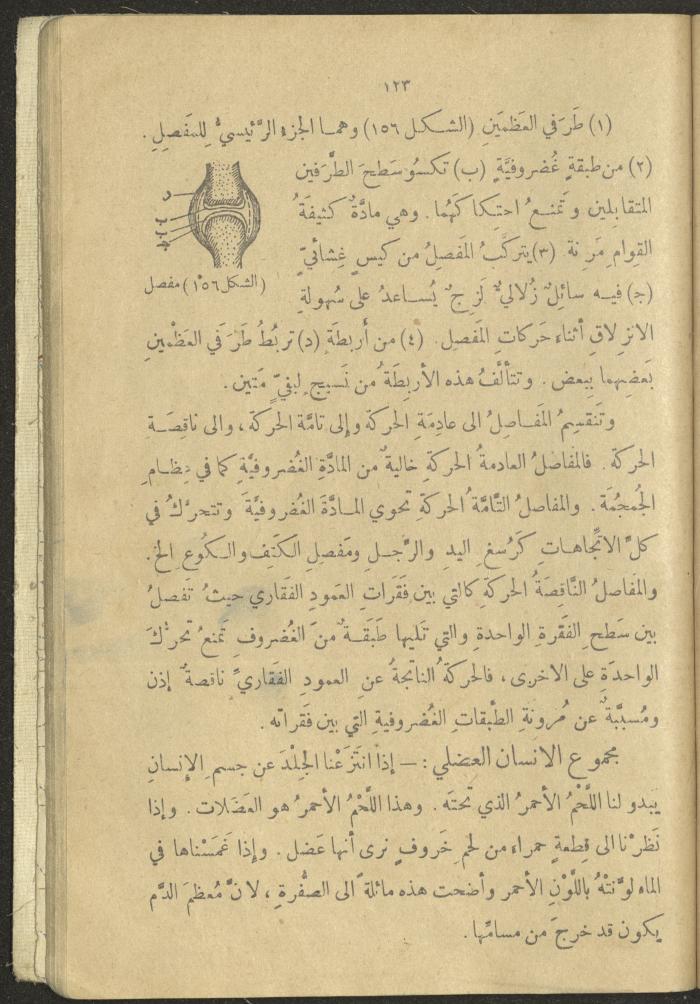 ١٢٣
(١) طَرَفي العَظمَينِ (الشكل ١٥٦) وهما الجزء الرَّئيسيُّ لِلمَفْصِلِ .
(٢) من طبقةٍ غُضروفيَّةٍ (ب) تكسُو سَطحَ الطَّرَفين
المتقابلين وتَمنعُ احتِكاكَهُما . وهي مادَّةٌ كثيفةُ
القوامِ مَرِنة (٣) يتركَّبُ المَفصِلُ من كيسٍ غِشائيّ
(ج) فيه سائِلٌ زُلاليٌّ لَزِجٌ يُساعدُ على سُهولةِ
د
ب
ج
(الشكل ١٥٦) مفصل
الانزِلاقِ أثناء حَركاتِ المَفصِل . (٤) من أَربطَةٍ (د) تربُطُ طَرَفي العَظْمينِ
بَعضِهما ببعض . وتتألَّفُ هذه الأربِطَةُ من نَسيجٍ لِيفيّ مَتين .
وتَنقسِمُ المَفاصِلُ الى عادِمَةِ الحركة وإلى تامَّة الحَركة ، والى ناقِصَة
الحركة . فالمَفاصلُ العادمةُ الحركةِ خاليةٌ من المادَّةِ الغُضروفيَّةِ كما في عِظامِ
الجُمجُمَة . والمفاصلُ التَّامَّةُ الحركةِ تحوي المادَّةَ الغُضروفيَّةَ وتتحرَّكُ في
كلِّ الاتِّجاهاتِ كَرُسغِ اليدِ والرِّجلِ ومَفصلِ الكَتِفِ والكُوعِ الخ .
والمَفاصلُ النَّاقصَةُ الحركةِ كالتي بين فَقَراتِ العَمودِ الفَقاري حيثُ تَفصلُ
بين سَطحِ الفَقَرةِ الواحدةِ والتي تَليها طَبَقةٌ منَ الغُضروفِ تَمنعُ تحرُّكَ
الواحدَةِ على الاخرى ، فالحركةُ الناتجةُ عنِ العمودِ الفَقاريِّ ناقصةٌ إذن
ومُسبَّبَةٌ عن مُرونةِ الطَّبقاتِ الغُضروفيةِ التي بين فَقَراتِه .
مجموع الانسان العضلي : — إذا انتَزَعْنا الجِلْدَ عن جسمِ الإنسانِ
يبدو لنا اللَّحْمُ الأحمرُ الذي تحتَه . وهذا اللَّحْمُ الأحمرُ هو العَضَلات . وإذا
نَظرْنا الى قِطعةٍ حمراء من لحمِ خَروفٍ نرى أنها عَضل . وإذا غَمَسْناها في
الماء لوَّنتْهُ باللَّوْنِ الأحمر وأضحت هذه مائلةً الى الصُّفرةِ ، لانَّ مُعظمَ الدَّمِ
يكون قد خرجَ من مسامِّها .